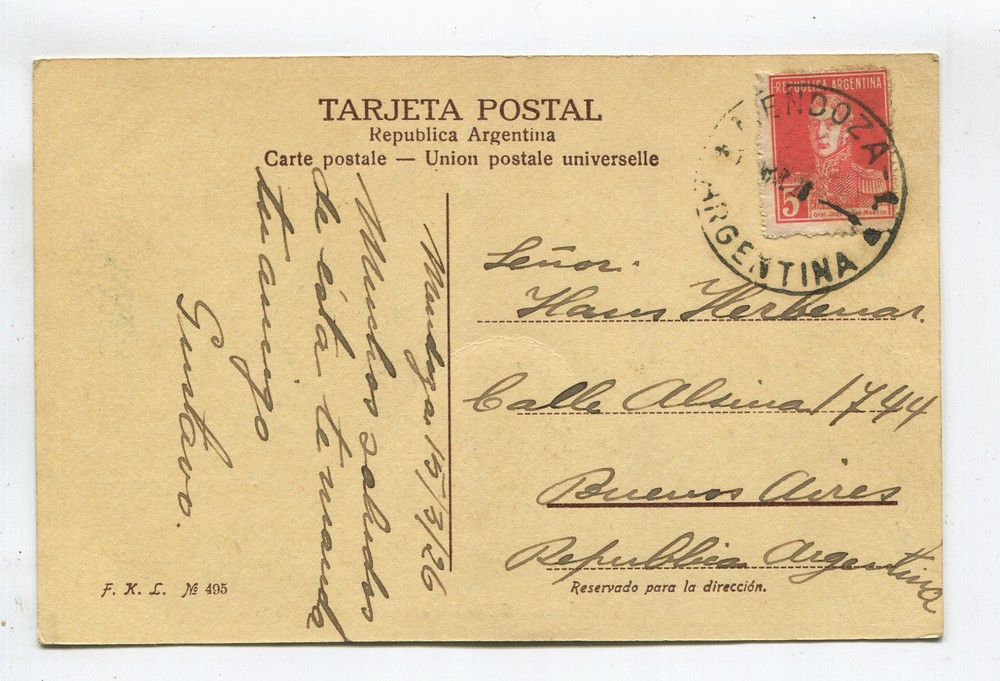 TARJETA POSTAL
Republica Argentina
Carte postale — Union postale universelle
REPUBLICA ARGENTINA
5
MENDOZA
ARGENTINA
Mendoza 15/3/26
Muchos saludos
de ésta te manda
tu amigo
Gustavo.
Señor.
Hans Herbener.
Calle Alsina 1744
Buenos Aires
Republica Argentina
Reservado para la dirección.
F. K. L. № 495